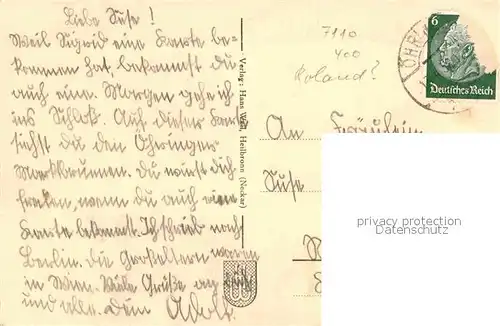 Liebe Suse!
Weil Sigrid eine Karte be-
kommen hat, bekommst du
auch eine. Morgen gehe ich
ins Schloß. Auf dieser Karte
siehst du den Öhringer
Marktbrunnen. Du wirst dich
freuen, wenn du auch eine
Karte bekommst. Ich schrieb nach
Berlin. Die Großeltern waren
in Wien. Viele Grüße an
und alle. Dein Adolf.
Verlag: Hans Wolf, Heilbronn (Neckar)
7110
400
Roland?
6
Deutsches Reich
An Fräulein
Suse
privacy protection
Datenschutz